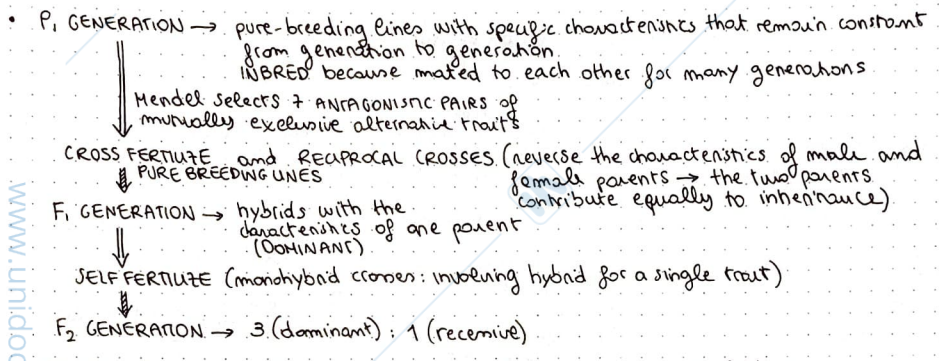 • P₁ GENERATION → pure-breeding lines with specific characteristics that remain constant
from generation to generation.
INBRED because mated to each other for many generations
Mendel selects 7 ANTAGONISTIC PAIRS of
mutually exclusive alternative traits
CROSS FERTILIZE and RECIPROCAL CROSSES (reverse the characteristics of male and
PURE BREEDING LINES
female parents → the two parents
contribute equally to inheritance)
F₁ GENERATION → hybrids with the
characteristics of one parent
(DOMINANT)
SELF FERTILIZE (monohybrid crosses: involving hybrid for a single trait)
F₂ GENERATION → 3 (dominant) : 1 (recessive)
www.unidoc